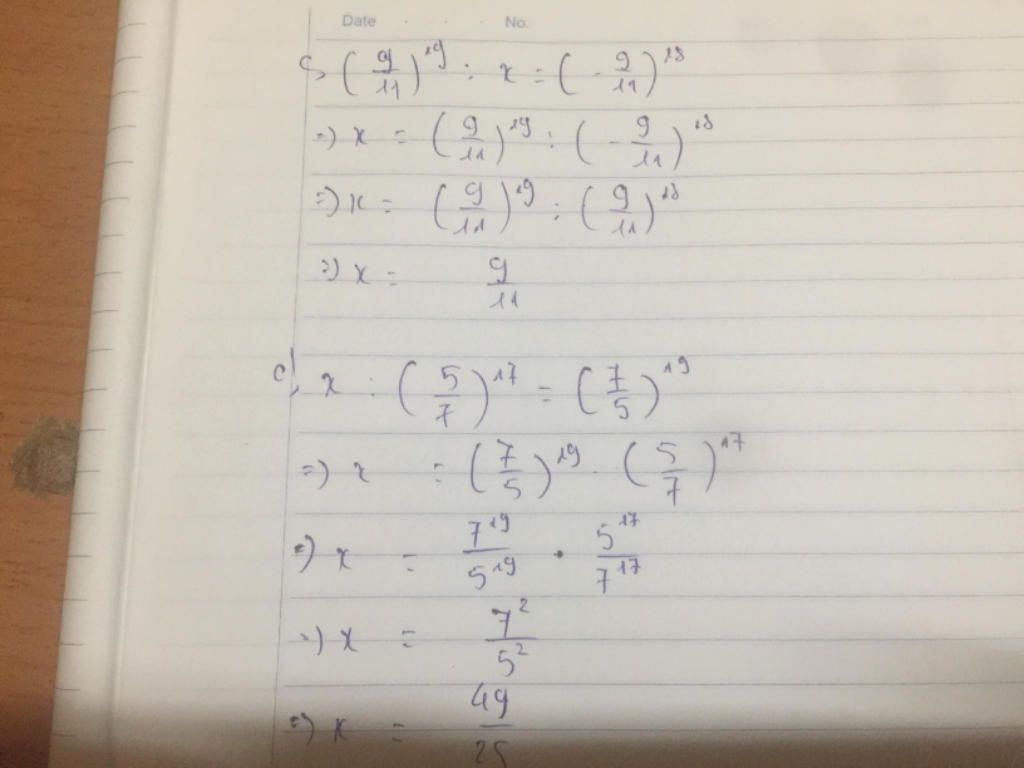 Date . . . No.
c, (9/11)^19 : x = (-9/11)^18
=) x = (9/11)^19 : (-9/11)^18
=) x = (9/11)^19 : (9/11)^18
=) x = 9/11
d, x : (5/7)^17 = (7/5)^19
=) x = (7/5)^19 . (5/7)^17
=) x = 7^19/5^19 . 5^17/7^17
=) x = 7^2/5^2
=) x = 49/25